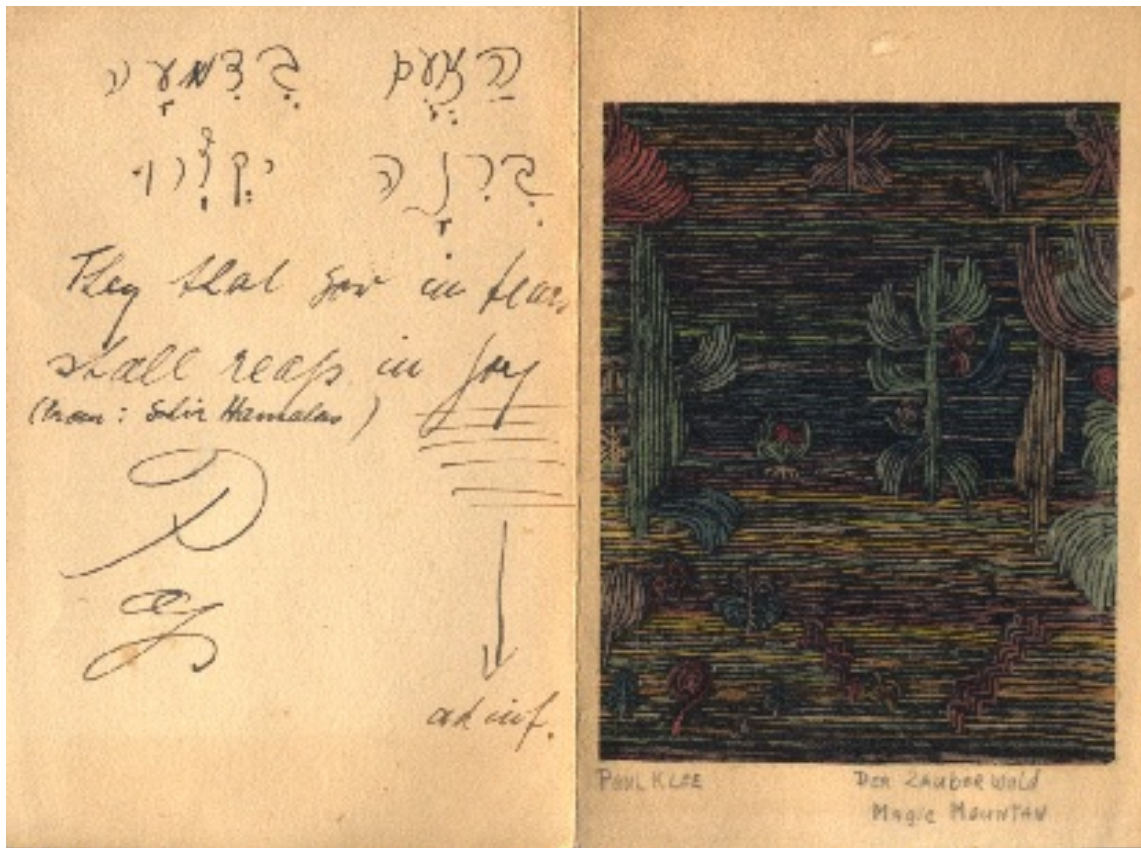 בְּדִמְעָה
בְּרִנָּה יִקְצֹרוּ
They that sow in tears
shall reap in joy
(from: Schir Hamalos)
ad inf.
PAUL KLEE
DER ZAUBERWALD
MAGIC MOUNTAN